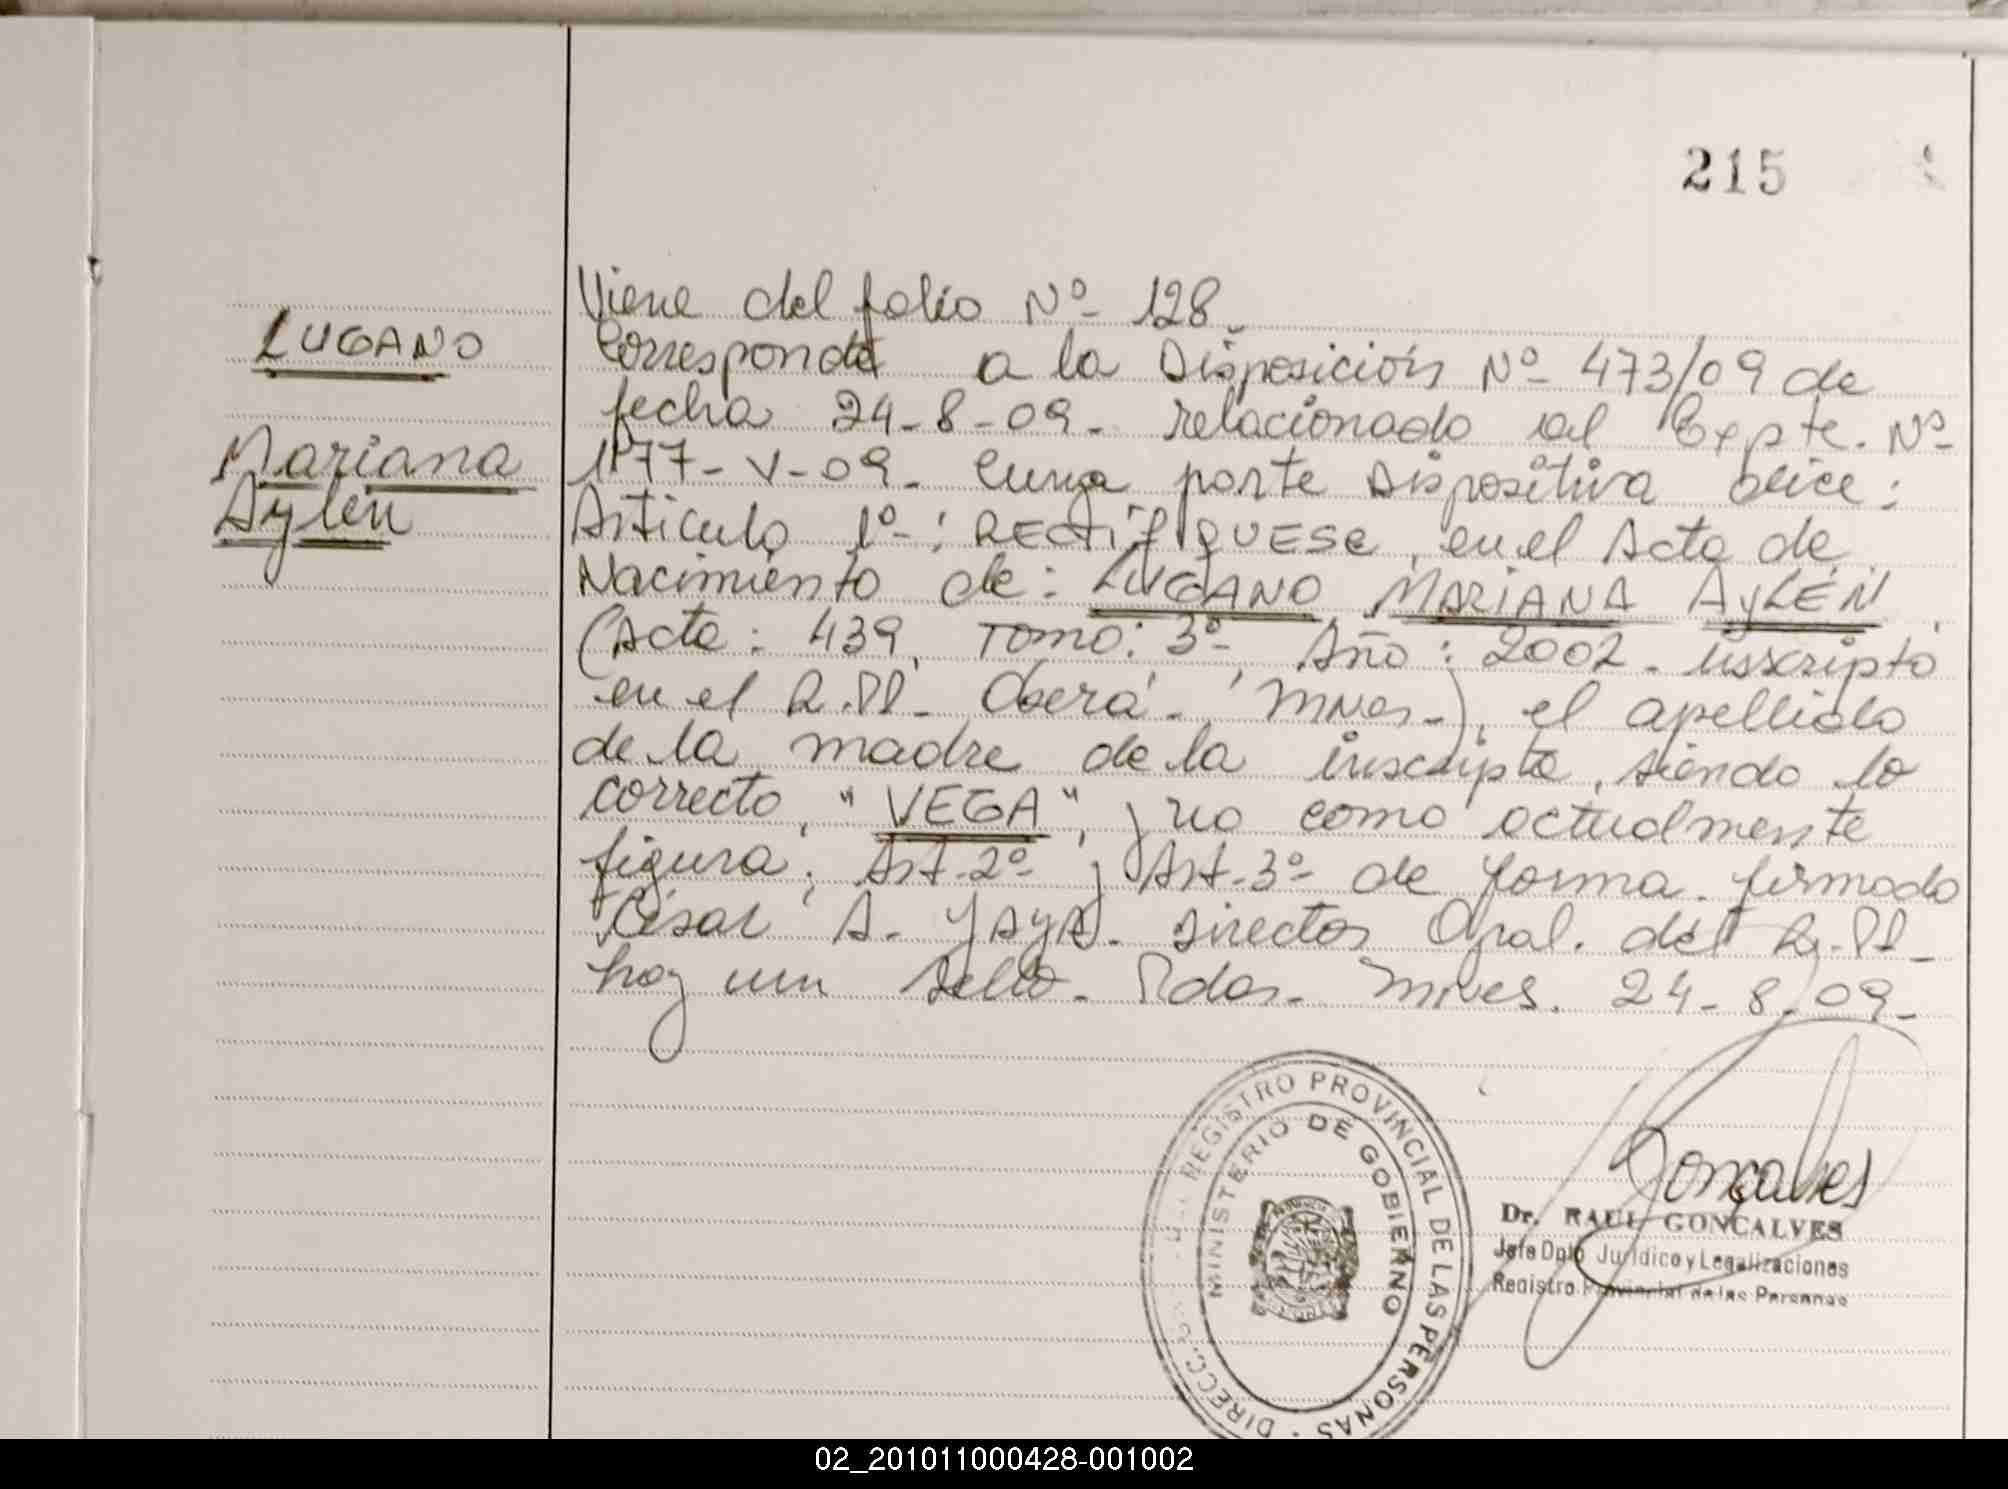 215
LUGANO
Mariana
Aylén
Viene del folio Nº 128.
Corresponde a la Disposición Nº 473/09 de
fecha 24-8-09- relacionado al Expte. Nº
1177-V-09- Cuya parte dispositiva dice:
Artículo 1º: RECTIFIQUESE, en el Acta de
Nacimiento de: LUGANO MARIANA AyLÉN,
(Acta: 439, Tomo: 3º, Año: 2002- inscripto
en el R.PP- Oberá-, Mnes-), el apellido
de la madre de la inscripta, siendo lo
correcto, "VEGA", y no como actualmente
figura; Art-2º y Art-3º de forma. firmado
César A. Director Gral. del R.PP-
hay un sello- Pdas- Mnes. 24-8-09-
REGISTRO PROVINCIAL DE LAS PERSONAS
MINISTERIO DE GOBIERNO
Goncalves
Dr. RAUL GONCALVES
Jefe Dpto Jurídico y Legalizaciones
Registro Provincial de las Personas
02_201011000428-001002